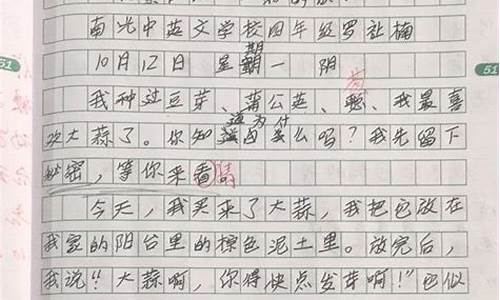 南光中英文学校四年级罗祉楠
10月12日 星期一 阴
我种过豆芽、蒲公英、葱、我最喜
欢大蒜了。你知道为什么吗?我先留下
秘密,等你来猜。
今天,我买来了大蒜,我把它放在
我家的阳台里的棕色泥土里。放完后,
我说“大蒜啊,你得快点发芽啊!”它似
51